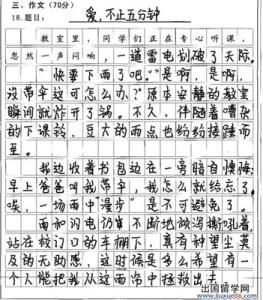 三、作文(70分)
18.题目：爱，不止五分钟
教室里，同学们正在专心听课，
忽然一声闷响，一道雷电划破了天际。
“快要下雨了吧”“是啊，是啊，
没带伞这可怎么办？”原本安静的教室
瞬间就炸开了锅。不久，伴随着嘈杂
的下课铃，豆大的雨点也纷纷接踵而
至。
我边收着书包边在一旁暗自懊悔，
早上爸爸叫我带伞，我怎么就给忘了
唉，一场雨中漫步是不可避免了。
雨和闪电仍牢不断地嘶吼着，
站在校门口的车棚下，真有种望尘莫
及的无助感，这时候是多么希望有一
个人能把我从这雨帘中拯救出去。
出国留学网
www.liuxue86.com